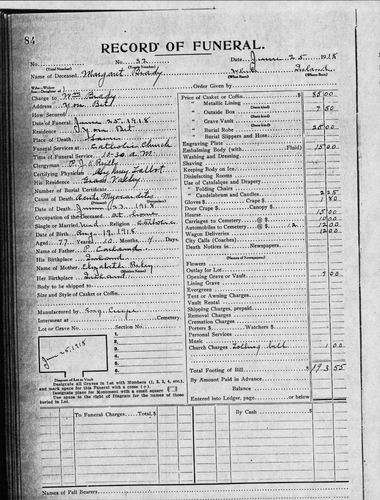 84
RECORD OF FUNERAL.
No. 32 Date June 25 1918
(Total Number) (Yearly Number) (What Race) (Where Born)
Name of Deceased Margaret Brady Ireland
Charge to Wm Brady Order Given by
Address
How Secured
Date of Funeral June 25, 1918
Residence
Place of Death Same
Funeral Services at Catholic Church
Time of Funeral Service 10-30 A.M.
Clergyman P. J. O. Reilly
Certifying Physician Talbot
His Residence Grass Valley
Number of Burial Certificate
Cause of Death Acute Myocarditis
Date of Death June 23, 1918
Occupation of the Deceased at home
Single or Married Religion Catholic
Date of Birth Aug. 19, 1918
Aged 77 Years 10 Months 4 Days
Name of Father P.
His Birthplace Ireland
Name of Mother Elizabeth
Her Birthplace Ireland
Body to be shipped to
Size and Style of Casket or Coffin
Manufactured by
Interment at Cemetery
Lot or Grave No. Section No.
June 25, 1918
1 2 3 4 5 6
Diagram of Lot or Vault
Designate all Graves in Lot with Numbers (1, 2, 3, 4, etc.,)
and mark space for this Funeral with a cross (+)
Designate place for Monument with a small square
Use space to the right of Diagram for the names of those
buried in Lot.
Price of Casket or Coffin 85 00
" Metallic Lining
" Outside Box 7 50
" Grave Vault
" Burial Robe 25 00
" Burial Slippers and Hose
Engraving Plate
Embalming Body (with Fluid) 15 00
Washing and Dressing
Shaving
Keeping Body on Ice
Disinfecting Rooms
Use of Catafalque and Drapery
" Folding Chairs
" Candelabrum and Candles 2 25
Gloves 1 80
Door Crape
Hearse 15 00
Carriages to Cemetery @ 10 00
Automobiles to Cemetery @ 12 00
Wagon Deliveries
City Calls (Coaches)
Death Notices in Newspapers
Flowers
Outlay for Lot
Opening Grave or Vault 9 00
Lining Grave
Evergreen
Tent or Awning Charges
Vault Rental
Shipping Charges, prepaid
Removal Charges
Cremation Charges
Porters $ Watchers $
Personal Services
Music
Church Charges Tolling bell 1 00
Total Footing of Bill $193 55
By Amount Paid in Advance
Balance
Entered into Ledger, page or below
To Funeral Charges Total, $ By Cash $
Names of Pall Bearers